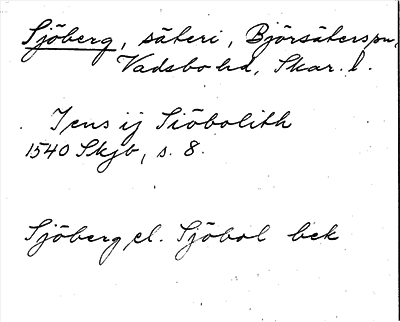 Sjöberg, säteri, Björsäterspn,
Vadsbo hd, Skar. l.
Jens ij Siöbolith
1540 Skjb, s. 8.
Sjöberg el. Sjöbol bek